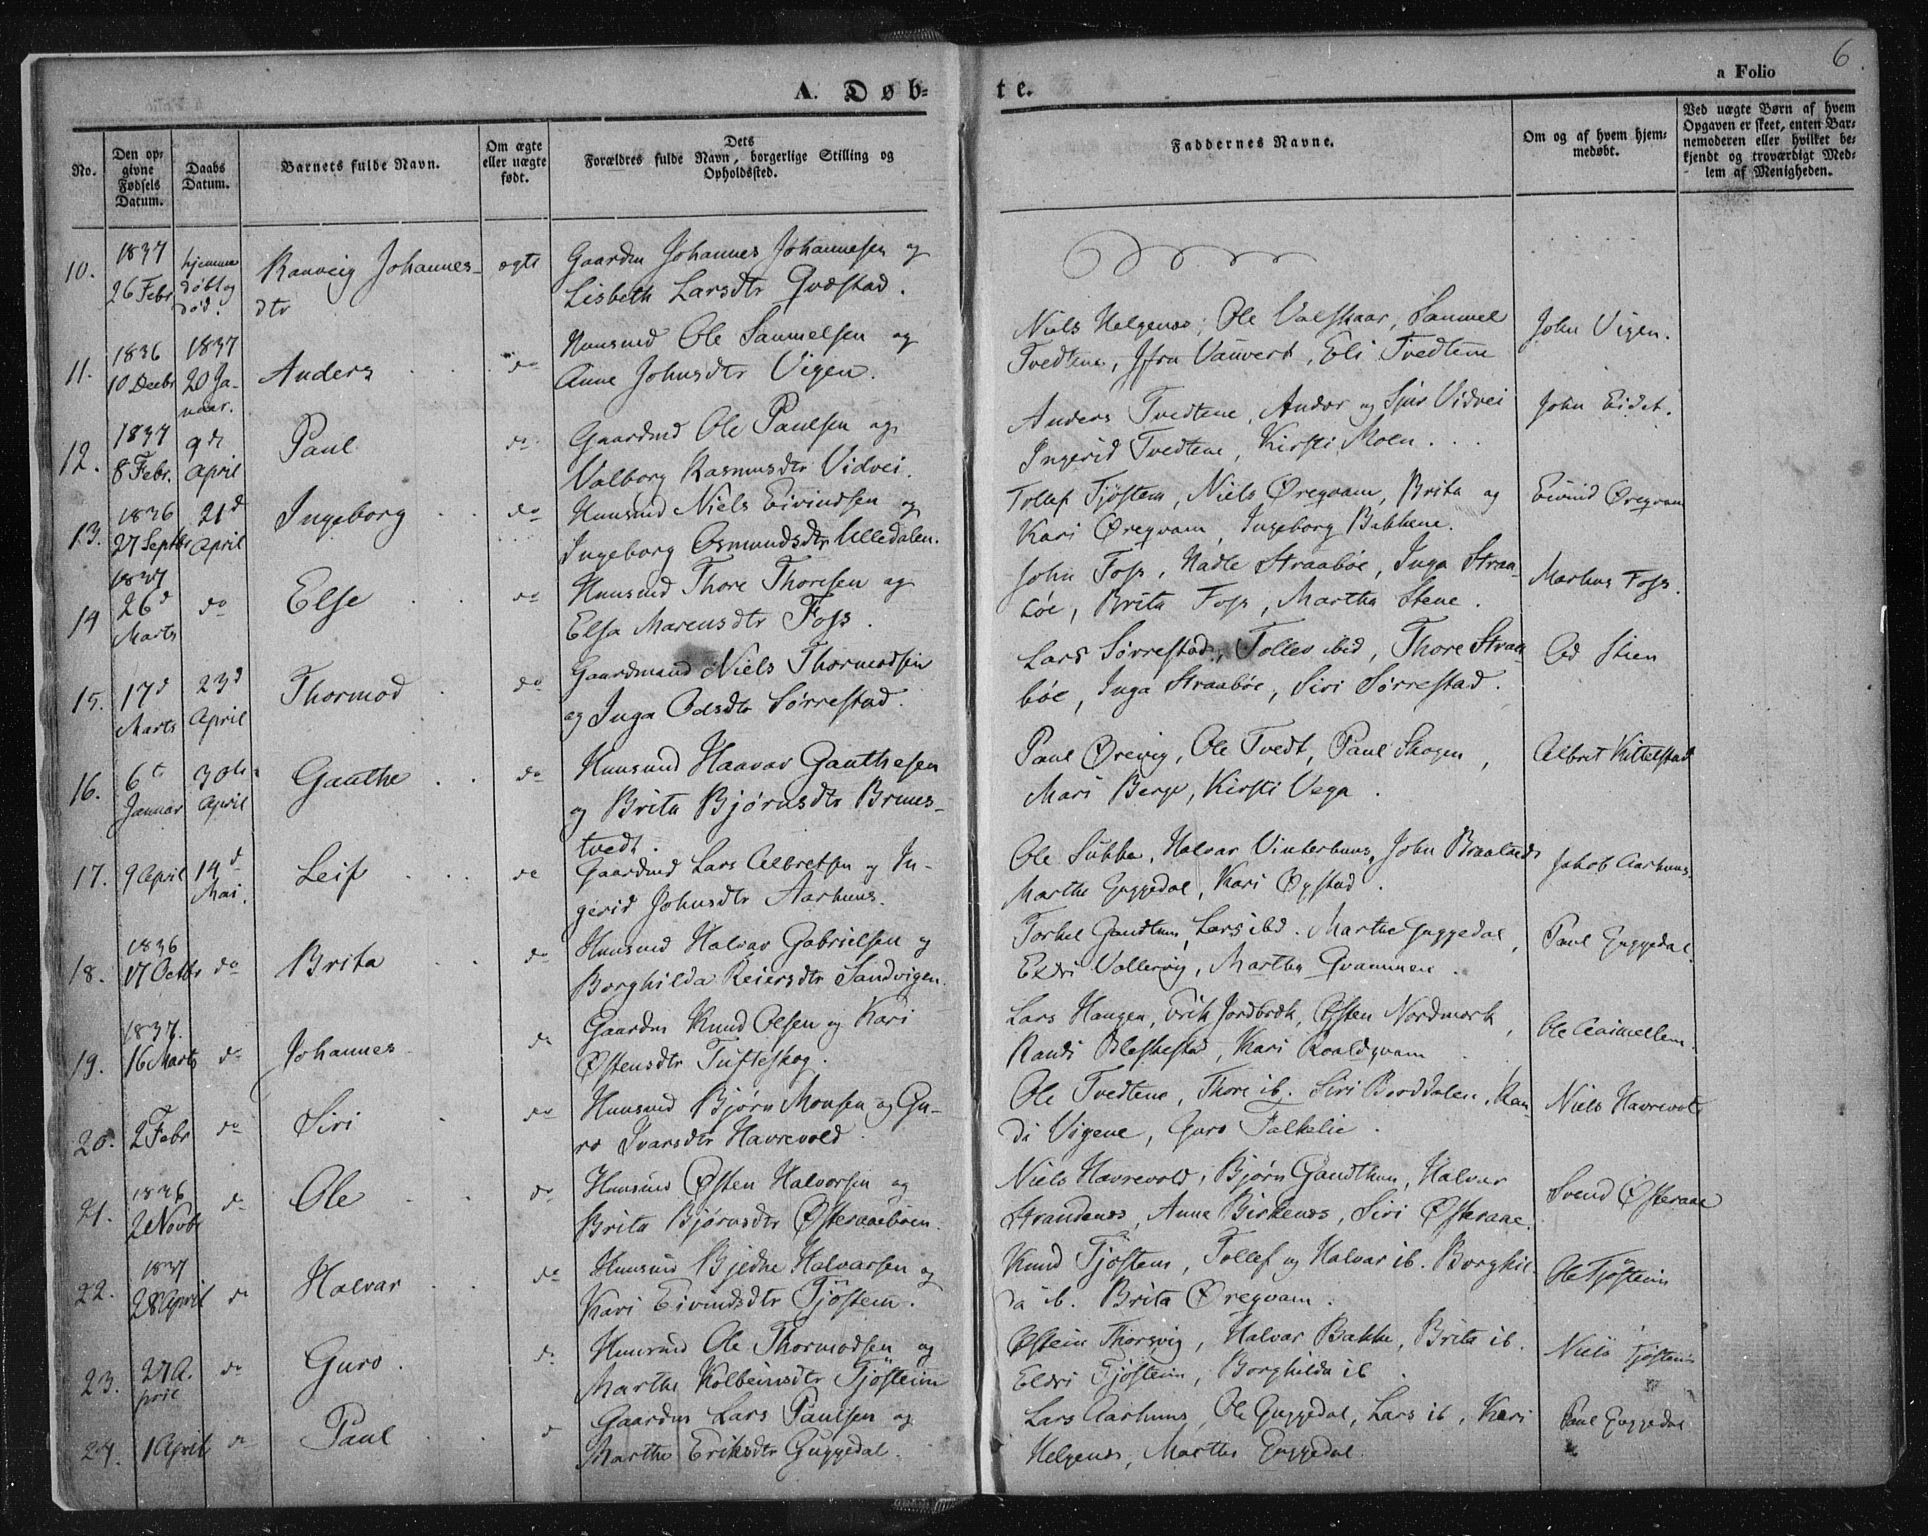 6.
a Folio
A. Døb-
te.
No.
Den op-
givne
Fødsels
Datum.
Daabs
Datum.
Barnets fulde Navn.
Om ægte
eller uægte
født.
Dets
Forældres fulde Navn, borgerlige Stilling og
Opholdssted.
Faddernes Navne.
Om og af hvem hjem-
medøbt.
Ved uægte Børn af hvem
Opgaven er skeet, enten Bar-
nemoderen eller hvilket be-
kjendt og troværdigt Med-
lem af Menigheden.
10. 1837 26 Febr. hjemme døbt og død. Ranveig Johannes-
dtr ægte Gaardm Johannes Johannesen og
Lisbeth Larsdtr Qvæstad.
11. 1836 10 Decbr 1837 20 Ja-
nuar. Anders do Huusmd Ole Samuelsen og
Anne Johnsdtr Vigen.
Niels Helgenæs, Ole Valskaar, Samuel
Tvedtene, Jfru Vauvert, Eli Tvedtene
John Vigen.
12. 1837 8 Febr. 9de April Paul do Gaardmd Ole Paulsen og
Valborg Rasmusdtr Vidvei.
Anders Tvedtene, Andor og Sjur Vidvei
Ingerid Tvedtene, Kirsti Moen.
John Eidet.
13. 1836 27 Septbr 21d April Ingeborg do Huusmd Niels Eivindsen og
Ingeborg Osmundsdtr Ulledalen.
Tollef Tjöstem, Niels Øreqvam, Brita og
Kari Øreqvam, Ingeborg Bakkene.
Eivind Øreqvam
14 1837 26d Marts do Else do Huusmd Thore Thoresen og
Elsa Marcusdtr Foss.
John Foss, Nadle Straabøe, Inga Straa-
bøe, Brita Foss, Martha Stene.
Markus Foss.
15. 17d Marts 23d April Thormod do Gaardmand Niels Thormodsen
og Inga Odsdtr Sørrestad.
Lars Sørrestad, Tollev ibid, Thore Straa-
bøe, Inga Straabøe, Siri Sørrestad.
Od Stien
16. 6t Januar 30te April Gauthe do Huusmd Haavar Gauthesen
og Brita Bjørnsdtr Brmes-
tvedt.
Paul Ørevig, Ole Tvedt, Paul Skogen,
Mari Berge, Kirsti Vega.
Albret Kittelstad
17. 9 April 14d Mai. Leif do Gaardmd Lars Albretsen og In-
gerid Johnsdtr Aarhuus.
Ole Subbe, Halvar Vinterhuus, John Braaland
Marthe Guggedal, Kari Øystad.
Jakob Aarhuus.
18. 1836 17 Octbr do Brita do Huusmd Halvar Gabrielsen og
Borghilda Reiersdtr Sandvigen.
Torkel Gandthun, Lars ibd. Marthe Guggedal,
Eldri Vallevig, Martha Qvammen.
Paul Guggedal.
19. 1837. 16 Marts do Johannes do Gaardm Knud Olsen og Kari
Østensdtr Tufteskog.
Lars Haugen, Erik Jordbrek, Østen Nordmork,
Randi Bleskestad, Kari Roaldqvam
Ole Aaimellem.
20. 2 Febr do Siri do Huusmd Bjørn Monsen og Gu-
ro Ivarsdtr Havrevold.
Ole Tvedtene, Thore ib. Siri Borddalen, Ran-
di Vigene, Guro Falkelie.
Niels Havrevold
21. 1836 2 Novbr do Ole do Huusmd Østen Halvorsen og
Brita Bjørnsdtr Østeraaebøen.
Niels Havrevold, Bjørn Gandthun, Halvar
Strandenæs, Anne Birkenæs, Siri Østeraae.
Svend Østeraae
22. 1837 28 April do Halvar do Huusmd Bjedne Halvarsen og
Kari Eivindsdtr Tjöstem.
Knud Tjöstem, Tollef og Halvar ib. Borghil-
da ib. Brita Øreqvam.
Ole Tjöstein
23. 27 A-
pril do Guro. do Huusmd Ole Thormodsen og
Marthe Kolbeinsdtr Tjöstein
Østein Thorsvig, Halvar Bakke, Brita ib.
Eldri Tjöstein, Borghilda ib.
Niels Tjöstein
24. 1 April do Paul do Gaardm Lars Paulsen og
Marthe Eriksdtr Guggedal.
Lars Aarhuus, Ole Guggedal, Lars ib, Kari
Helgenæs, Marthe Guggedal
Paul Guggedal